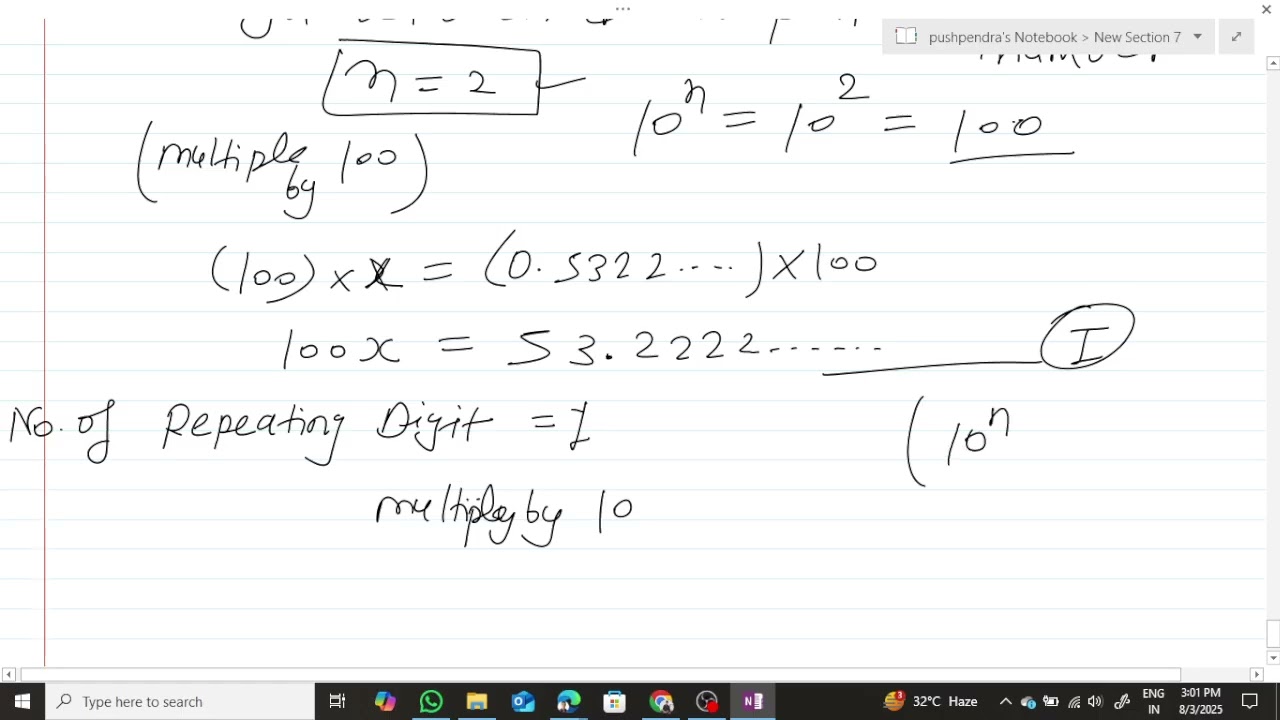 pushpendra's Notebook > New Section 7
n = 2
10^n = 10^2 = 100
(multiple by 100)
(100) × x = (0.5322....) × 100
100x = 53.2222...... I
No. of Repeating Digit = 1
(10^n
multiply by 10
Type here to search
32°C Haze
ENG
IN
3:01 PM
8/3/2025